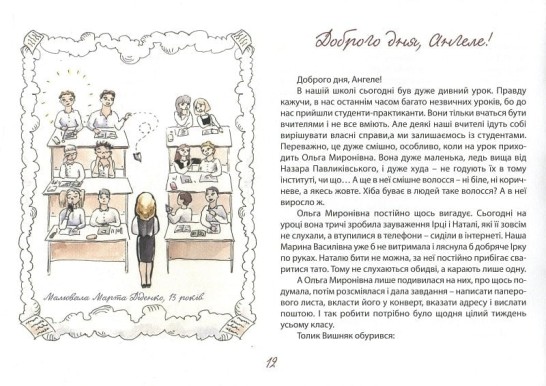 Малювала Марта Діденко, 13 років
Доброго дня, Ангеле!
Доброго дня, Ангеле!
В нашій школі сьогодні був дуже дивний урок. Правду
кажучи, в нас останнім часом багато незвичних уроків, бо до
нас прийшли студенти-практиканти. Вони тільки вчаться бути
вчителями і не все вміють. Але деякі наші вчителі ідуть собі
вирішувати власні справи,а ми залишаємось із студентами.
Переважно, це дуже смішно, особливо, коли на урок прихо-
дить Ольга Миронівна. Вона дуже маленька, ледь вища від
Назара Павликівського, і дуже худа – не годують їх в тому
інституті, чи що… А ще в неї смішне волосся – ні біле, ні корич-
неве, а якесь жовте. Хіба буває в людей таке волосся? А в неї
виросло ж.
Ольга Миронівна постійно щось вигадує. Сьогодні на
уроці вона тричі зробила зауваження Ірці і Наталі, які її зовсім
не слухали, а втупилися в телефони – сиділи в інтернеті. Наша
Марина Василівна уже б не витримала і ляснула б добряче Ірку
по руках. Наталю бити не можна, за неї постійно прибігає сва-
ритися тато. Тому не слухаються обидві, а карають лише одну.
А Ольга Миронівна лише подивилася на них, про щось по-
думала, потім розсміялася і дала завдання – написати паперо-
вого листа, вкласти його у конверт, вказати адресу і вислати
поштою. І так робити потрібно було щодня цілий тиждень
усьому класу.
Толик Вишняк обурився:
12